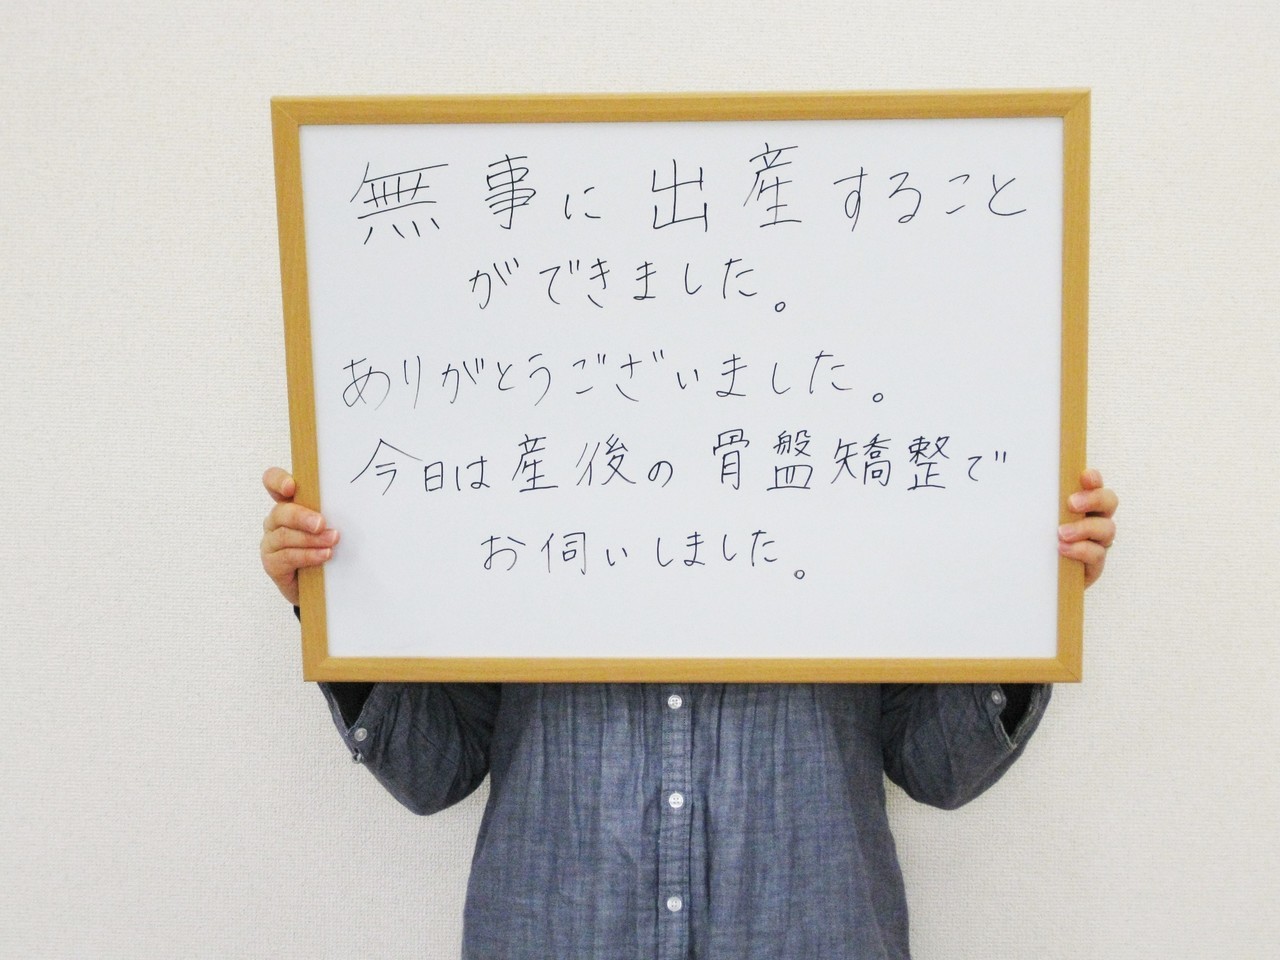 無事に出産すること
ができました。
ありがとうございました。
今日は産後の骨盤矯整で
お伺いしました。